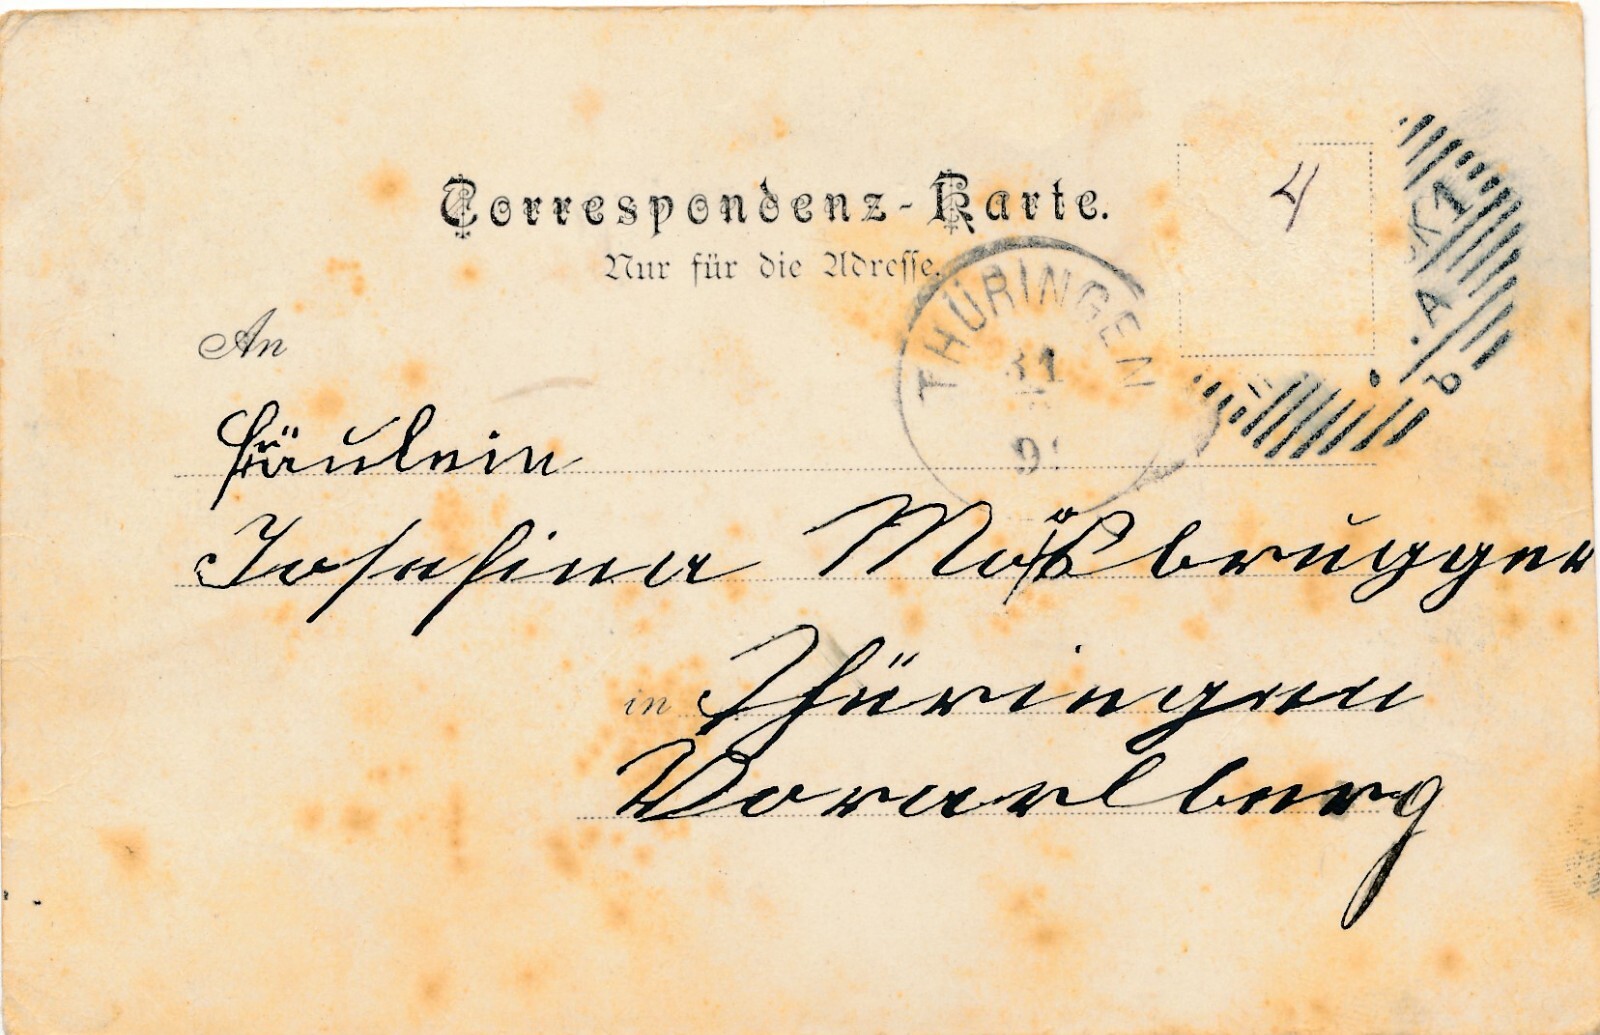 Correspondenz-Karte.
Nur für die Adresse.
4
An
THÜRINGEN
31
9
K 1
A
b
Fräulein
Josefina Mosbrugger
in Thüringen
Vorarlberg